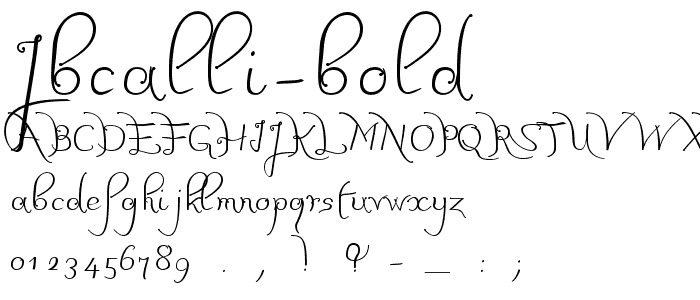 Jbcalli-bold
ABCDEFGHIJKLMNOPQRSTUVWX
abcdefghijklmnopqrstuvwxyz
0123456789 . , ! ? - _ : ;